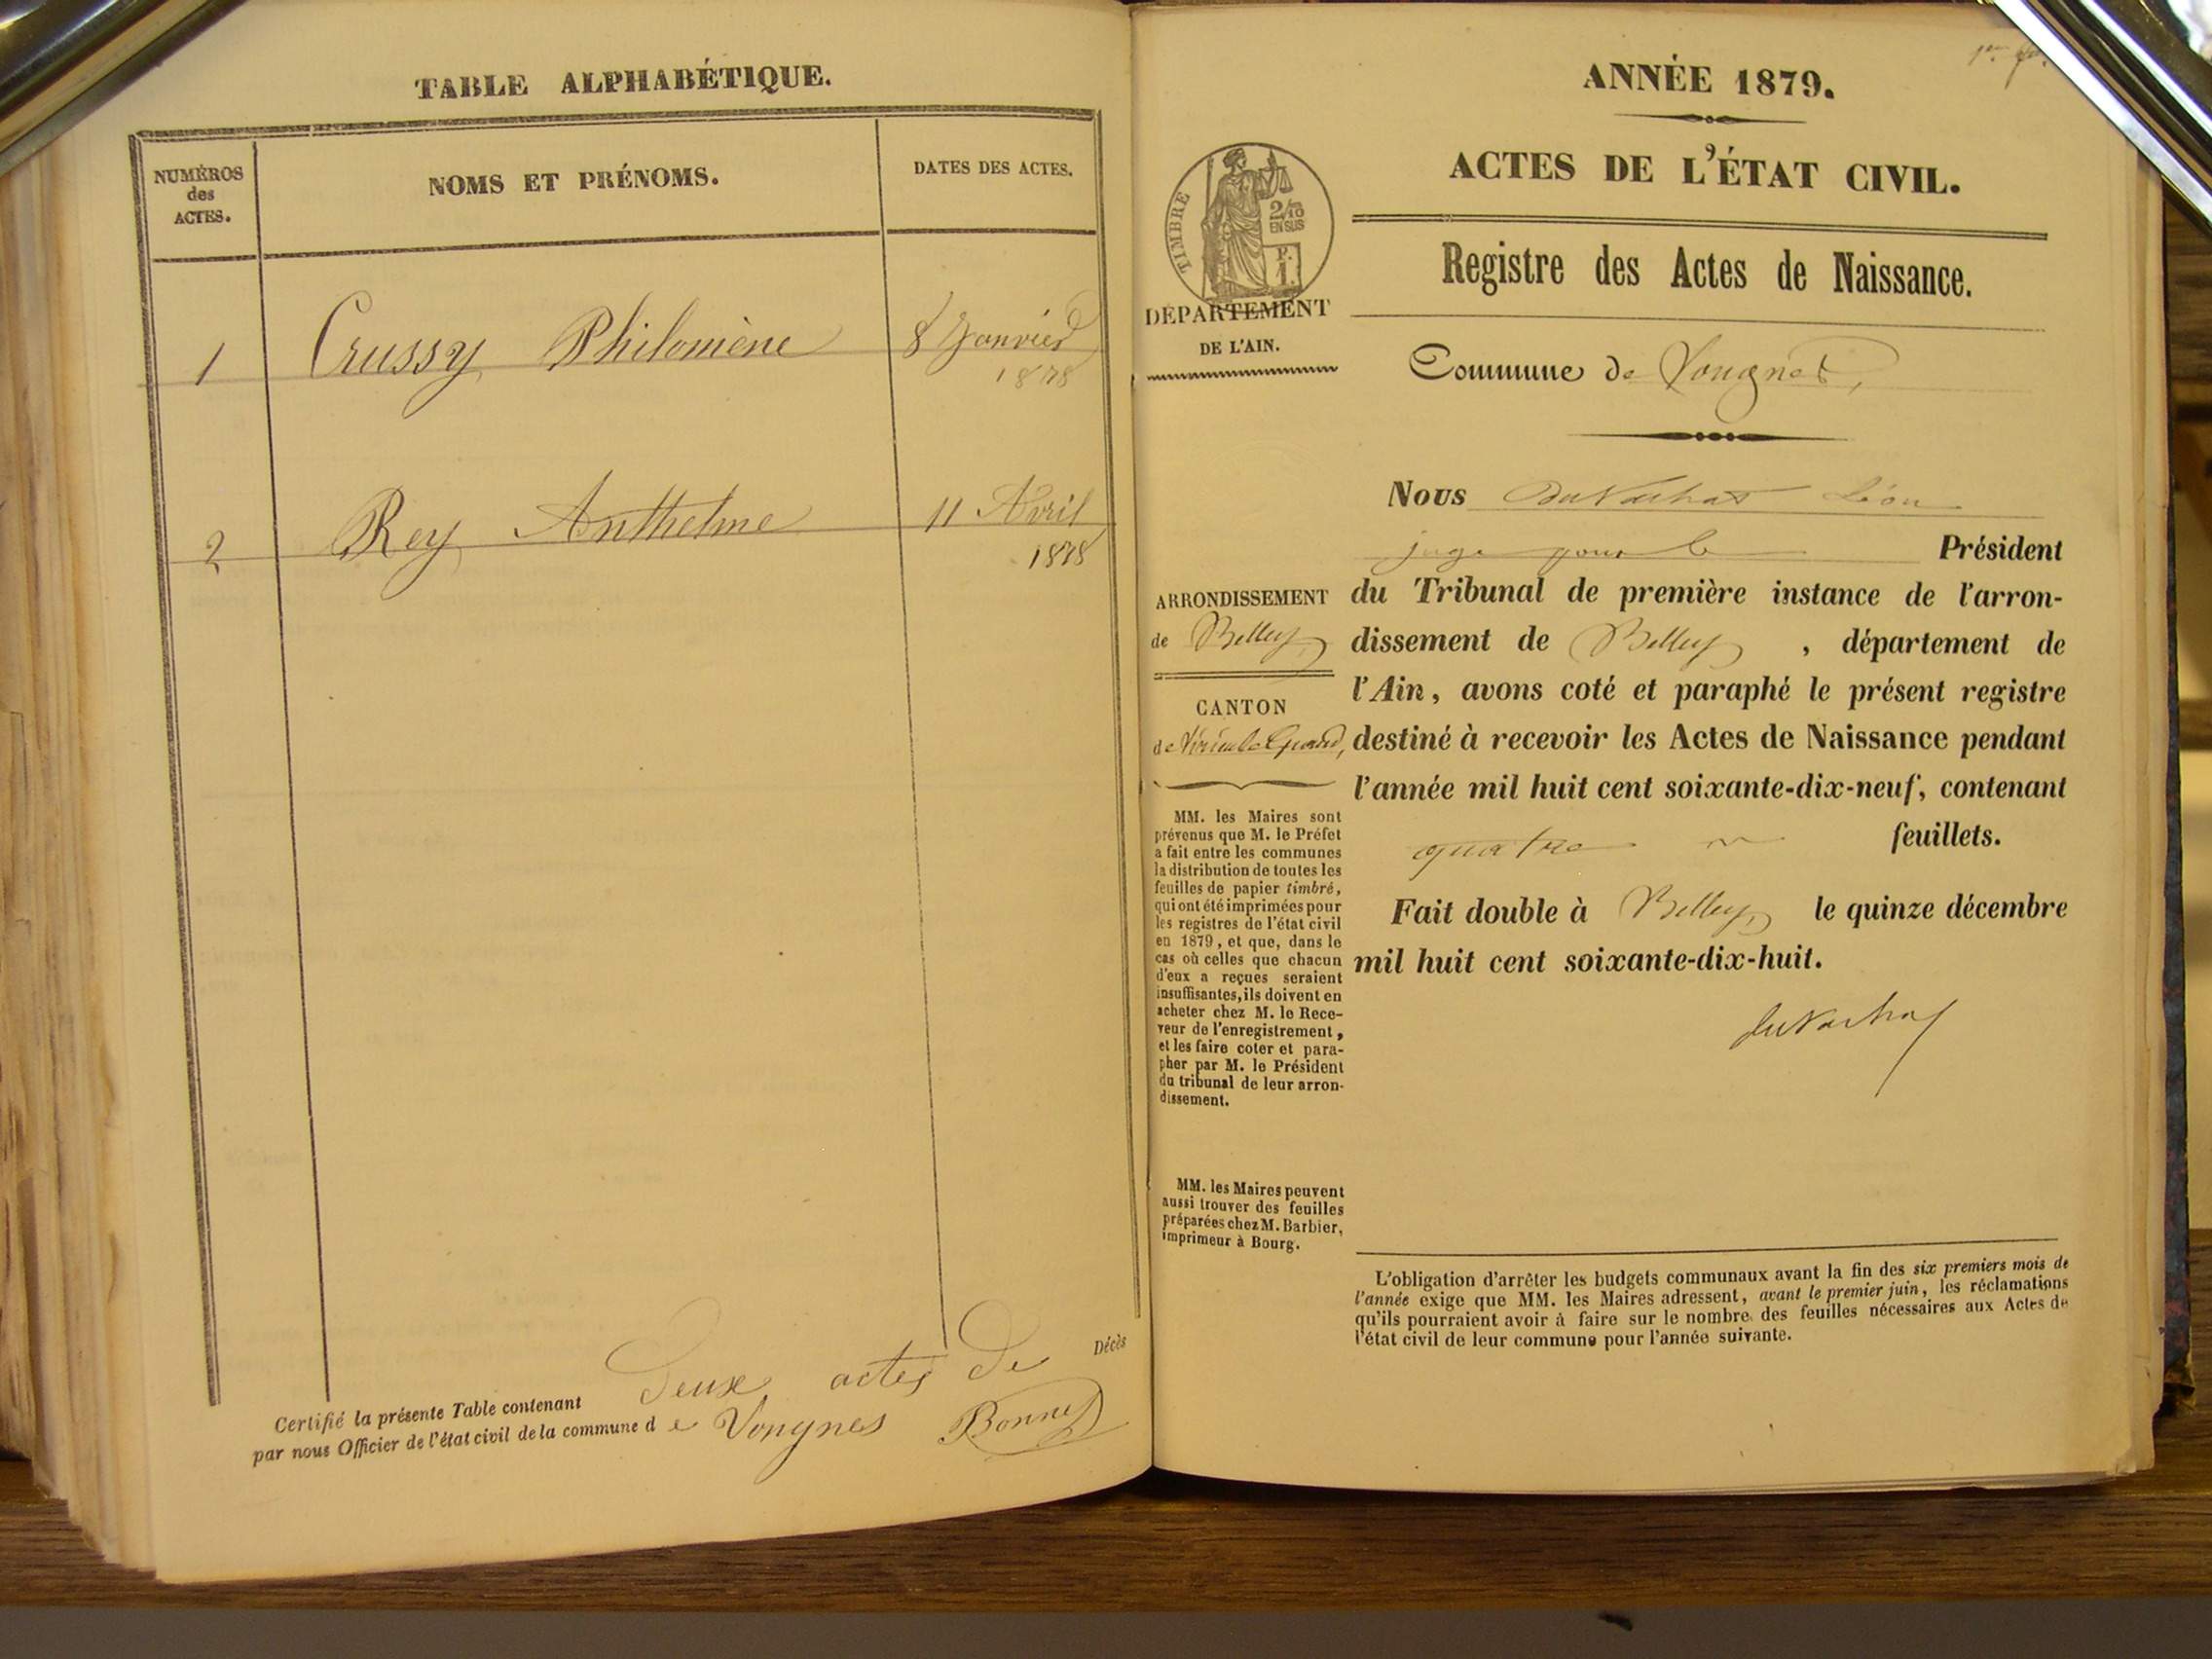 TABLE ALPHABÉTIQUE.
NUMÉROS
des
ACTES.
NOMS ET PRÉNOMS.
DATES DES ACTES.
1 Crussy Philomène 8 Janvier
1878
2 Rey Anthelme 11 Avril
1878
Certifié la présente Table contenant Deux actes de Décès
par nous Officier de l'état civil de la commune de Vongnes Bonnet
ANNÉE 1879.
ACTES DE L'ÉTAT CIVIL.
Registre des Actes de Naissance.
TIMBRE
2/10
EN SUS
F.
1.
DÉPARTEMENT
DE L'AIN.
Commune de Vongnes,
ARRONDISSEMENT
de Belley
CANTON
de Virieu le Grand,
MM. les Maires sont
prévenus que M. le Préfet
a fait entre les communes
la distribution de toutes les
feuilles de papier timbré,
qui ont été imprimées pour
les registres de l'état civil
en 1879, et que, dans le
cas où celles que chacun
d'eux a reçues seraient
insuffisantes, ils doivent en
acheter chez M. le Rece-
veur de l'enregistrement,
et les faire coter et para-
pher par M. le Président
du tribunal de leur arron-
dissement.
MM. les Maires peuvent
aussi trouver des feuilles
préparées chez M. Barbier,
imprimeur à Bourg.
Nous Du Vachat Léon
juge pour le Président
du Tribunal de première instance de l'arron-
dissement de Belley, département de
l'Ain, avons coté et paraphé le présent registre
destiné à recevoir les Actes de Naissance pendant
l'année mil huit cent soixante-dix-neuf, contenant
quatre feuillets.
Fait double à Belley, le quinze décembre
mil huit cent soixante-dix-huit.
du Vachat
L'obligation d'arrêter les budgets communaux avant la fin des six premiers mois de
l'année exige que MM. les Maires adressent, avant le premier juin, les réclamations
qu'ils pourraient avoir à faire sur le nombre des feuilles nécessaires aux Actes de
l'état civil de leur commune pour l'année suivante.